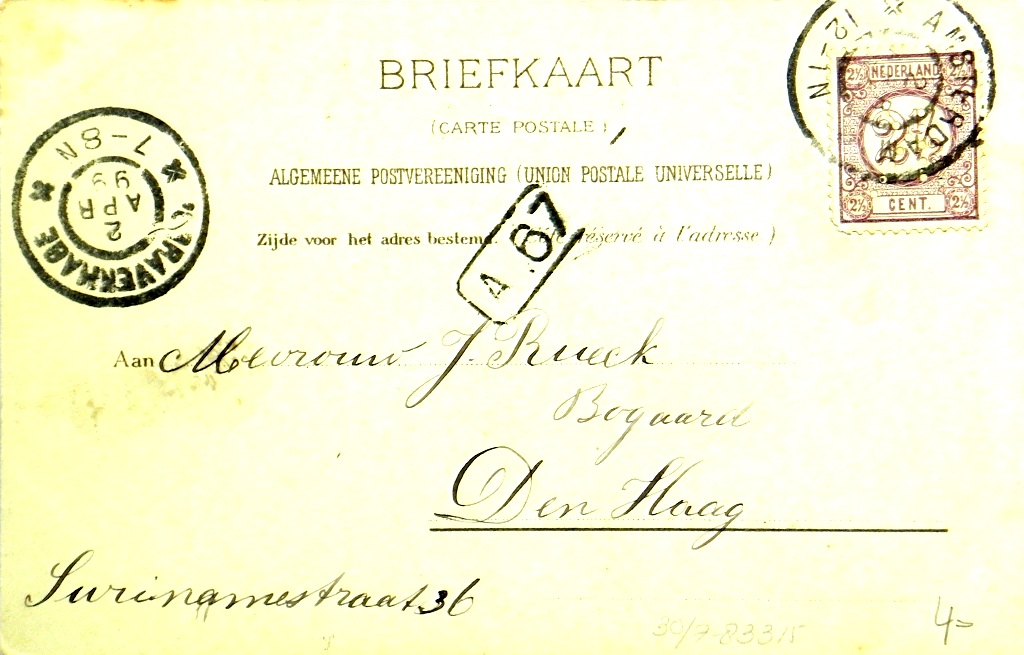 BRIEFKAART
(CARTE POSTALE)
ALGEMEENE POSTVEREENIGING (UNION POSTALE UNIVERSELLE)
Zijde voor het adres bestemd. réservé à l'adresse)
A. 67
12-1N
AMSTERDAM
2½ NEDERLAND 2½
2½
2½ CENT. 2½
7-8N
2 APR 99
'S GRAVENHAGE
Aan Mevrouw J. Rueck
Bogaard
Den Haag
Surinamestraat 36
30/7-83315
4=